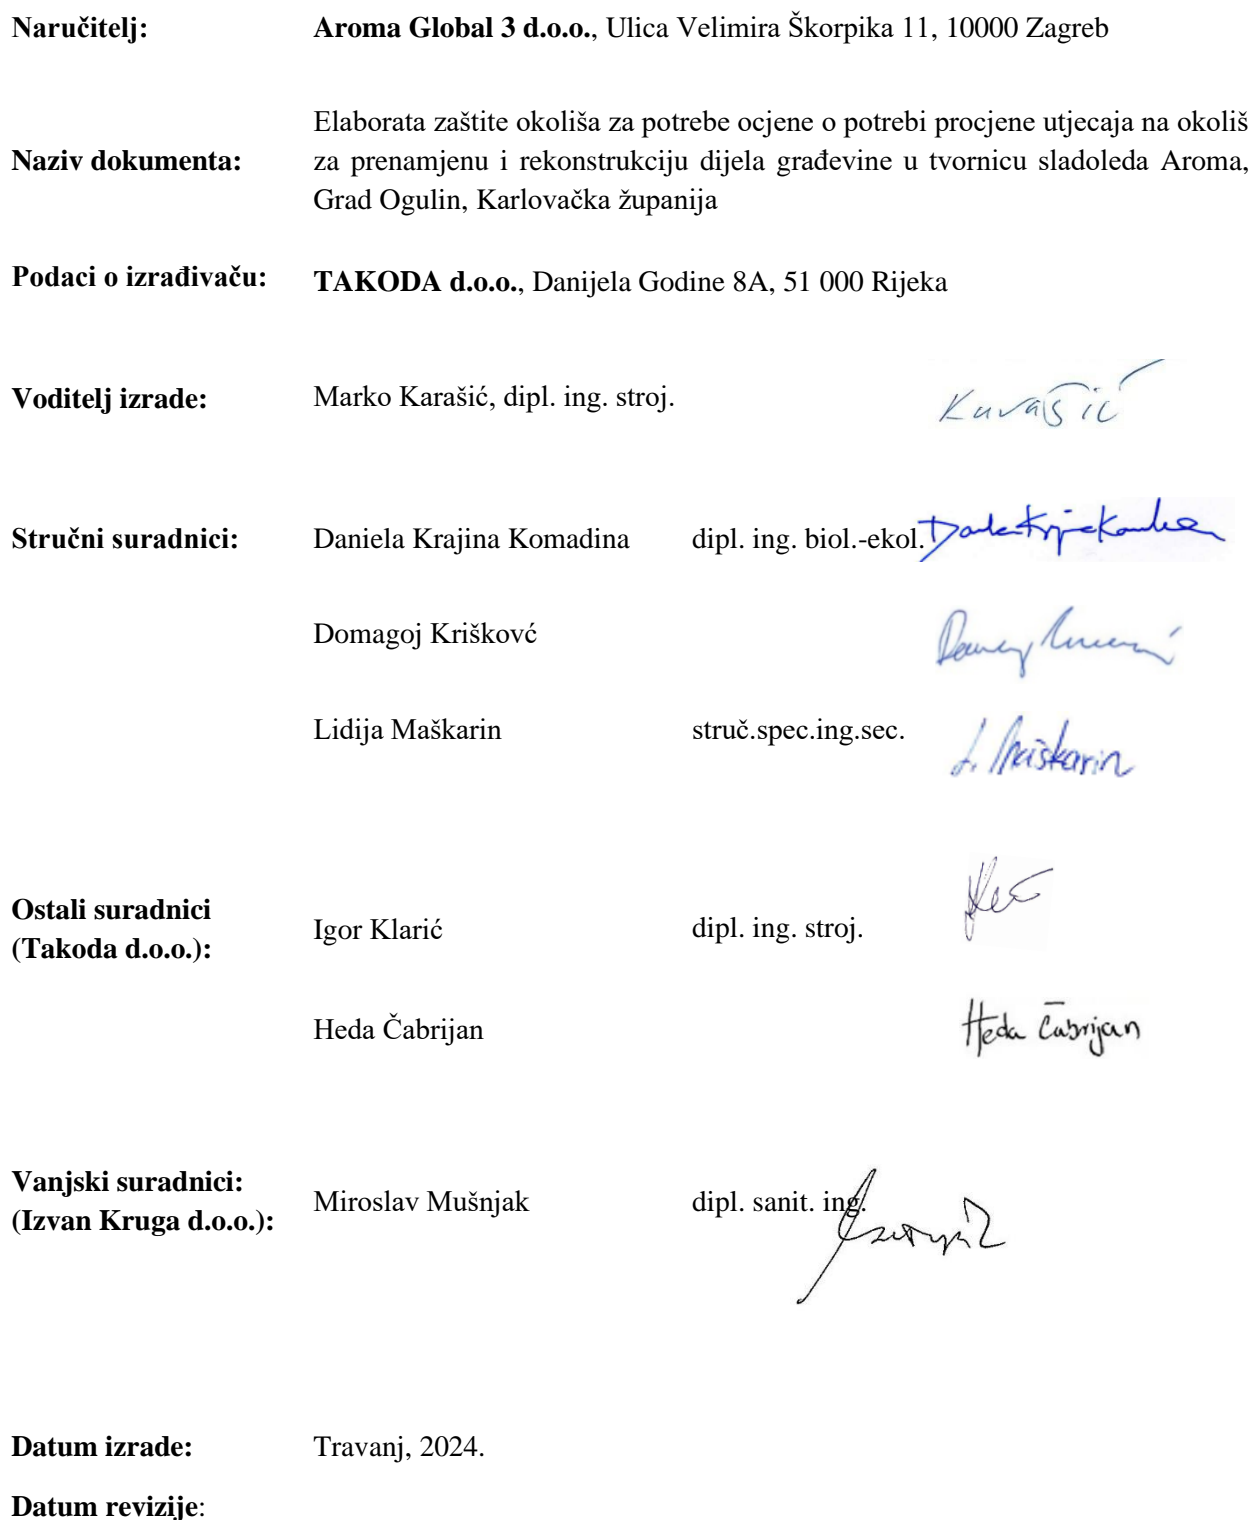 Naručitelj: Aroma Global 3 d.o.o., Ulica Velimira Škorpika 11, 10000 Zagreb
Elaborata zaštite okoliša za potrebe ocjene o potrebi procjene utjecaja na okoliš
Naziv dokumenta: za prenamjenu i rekonstrukciju dijela građevine u tvornicu sladoleda Aroma,
Grad Ogulin, Karlovačka županija
Podaci o izrađivaču: TAKODA d.o.o., Danijela Godine 8A, 51 000 Rijeka
Voditelj izrade: Marko Karašić, dipl. ing. stroj. Karašić
Stručni suradnici: Daniela Krajina Komadina dipl. ing. biol.-ekol.
Domagoj Kriškovć
Lidija Maškarin struč.spec.ing.sec. L. Maškarin
Ostali suradnici
(Takoda d.o.o.):
Igor Klarić dipl. ing. stroj.
Heda Čabrijan Heda Čabrijan
Vanjski suradnici:
(Izvan Kruga d.o.o.):
Miroslav Mušnjak dipl. sanit. ing.
Datum izrade: Travanj, 2024.
Datum revizije: